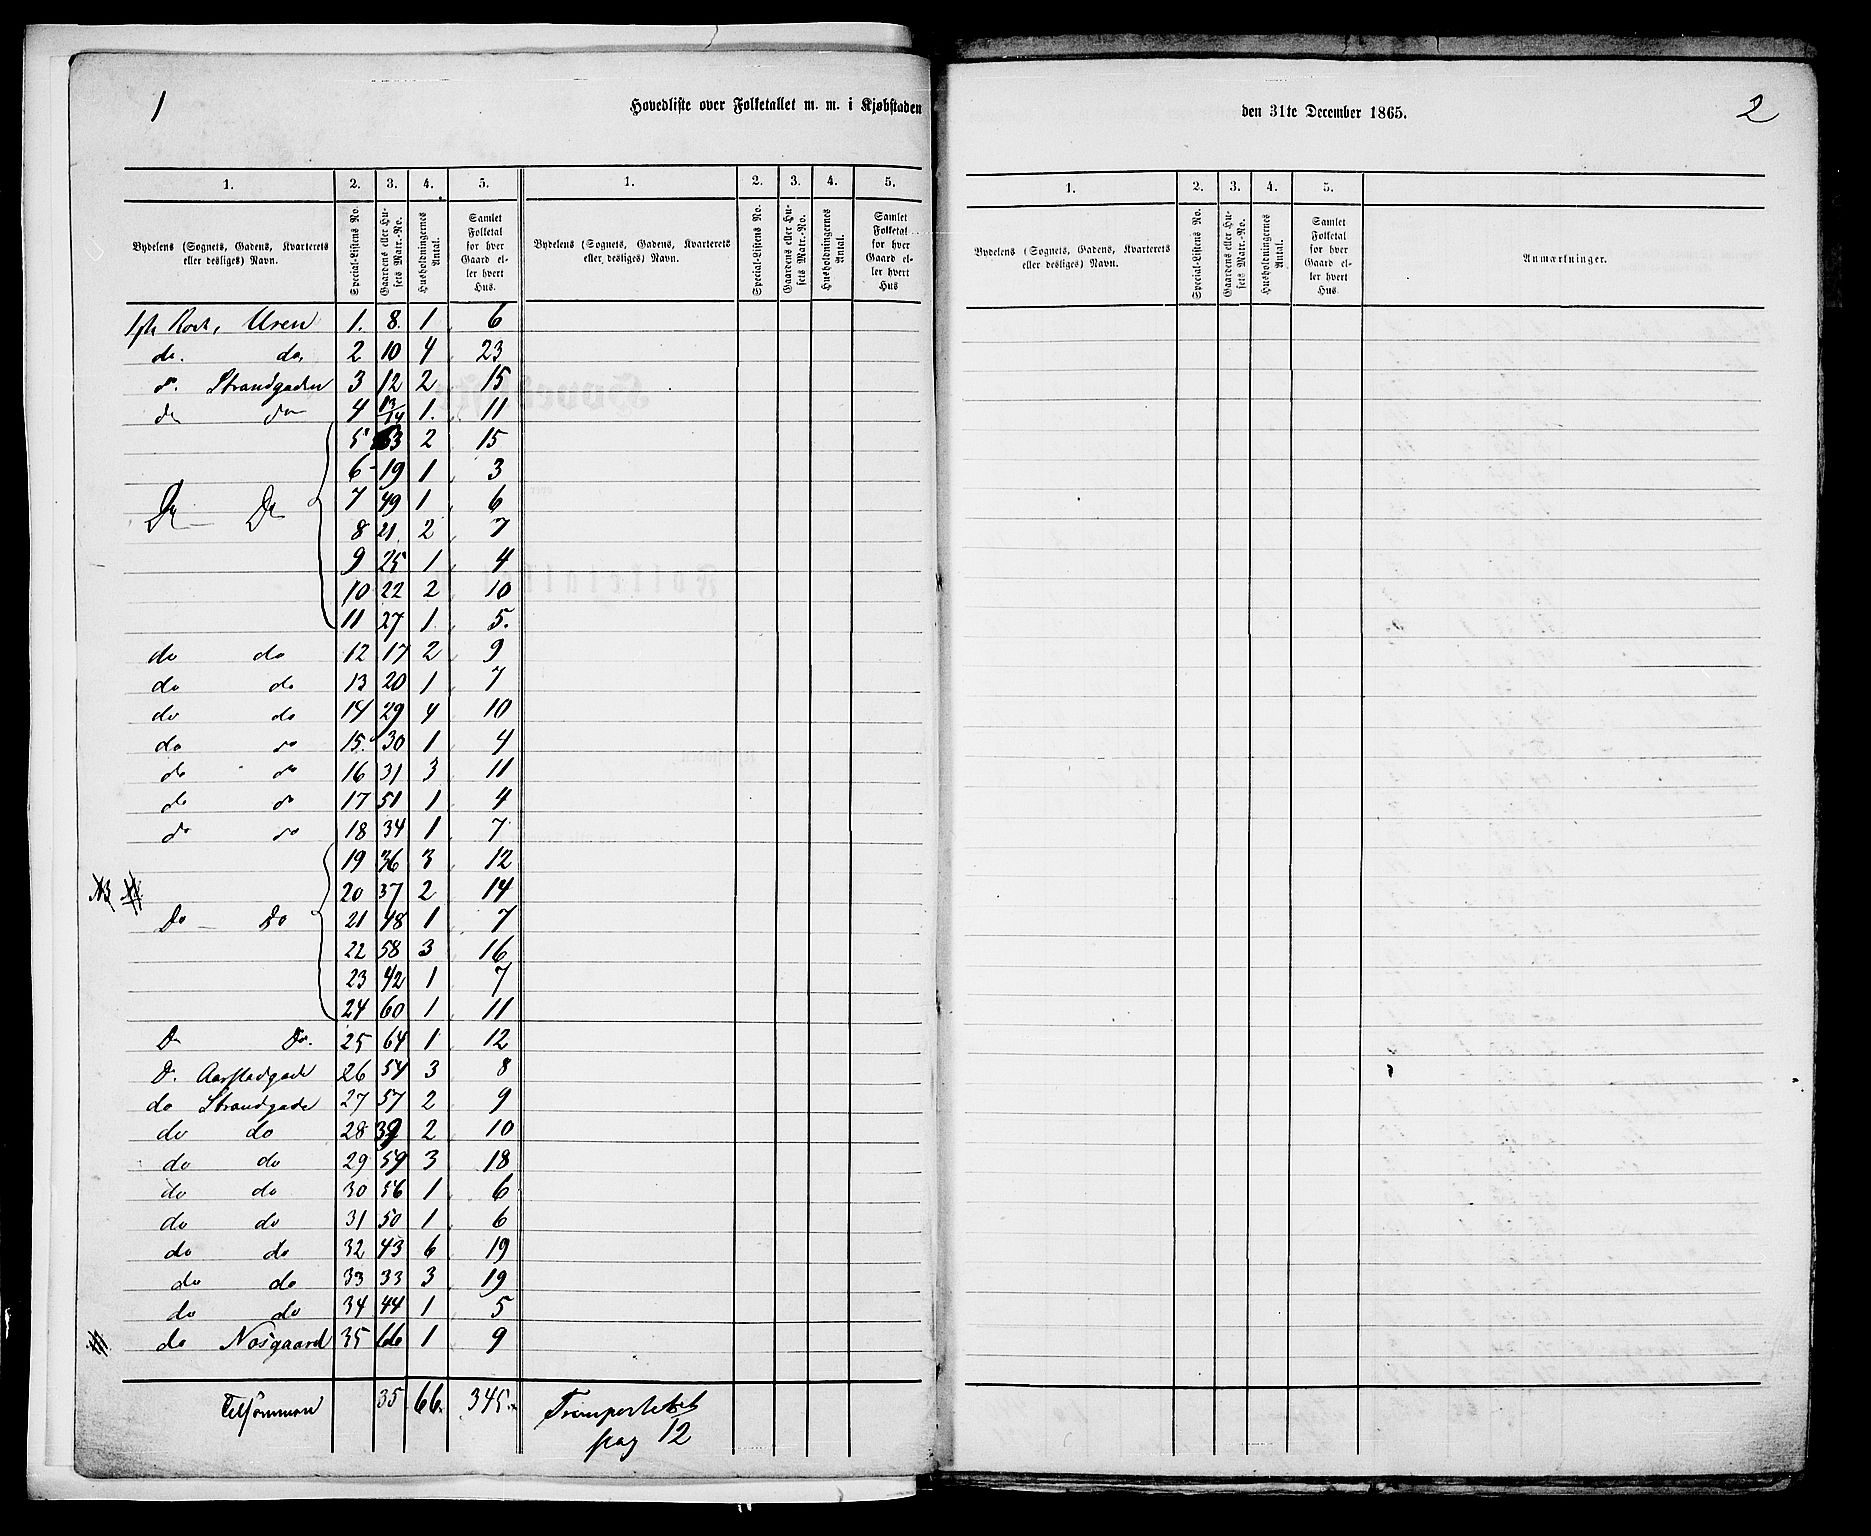 1
Hovedliste over Folketallet m. m. i Kjøbstaden
den 31te December 1865.
2
1. 2. 3. 4. 5. 1. 2. 3. 4. 5.
1. 2. 3. 4. 5.
Bydelens (Sognets, Gadens, Kvarterets eller desliges) Navn. Special-Listens No. Gaardens eller Husets Matr.-No. Husholdningernes Antal. Samlet Folketal for hver Gaard eller hvert Hus.
Bydelens (Sognets, Gadens, Kvarterets eller desliges) Navn. Special-Listens No. Gaardens eller Husets Matr.-No. Husholdningernes Antal. Samlet Folketal for hver Gaard eller hvert Hus
Bydelens (Sognets, Gadens, Kvarterets eller desliges) Navn. Special-Listens No. Gaardens eller Husets Matr.-No. Husholdningernes Antal. Samlet Folketal for hver Gaard eller hvert Hus. Anmærkninger.
1ste Rode, Uren 1. 8. 1 6
do. do. 2 10 4 23
do. Strandgaden 3 12 2 15
do do 4 13/14 1. 11
5 63 2 15
6 19 1 3
Do Do 7 49 1 6
8 21 2 7
9 25 1 4
10 22 2 10
11 27 1. 5.
do do 12 17 2 9
do do 13 20 1 7
do do 14 29 4 10
do do 15. 30 1 4
do do 16 31 3 11
do do 17 51 1 4
do do 18 34 1 7
19 36 3 12
20 37 2 14
Do Do 21 48 1 7
22 58 3 16
23 42 1 7
24 60 1 11
Do Do. 25 64 1 12
D. Aarstadgade 26 54 3 8
do Strandgade 27 57 2 9
do do 28 39 2 10
do do 29 59 3 18
do do 30 56 1 6
do do 31 50 1 6
do do 32 43 6 19
do do 33 33 3 19
do do 34 44 1 5
do Nosgaard 35 66 1 9
Tilsammen 35 66. 345.
Transporteret
pag 12